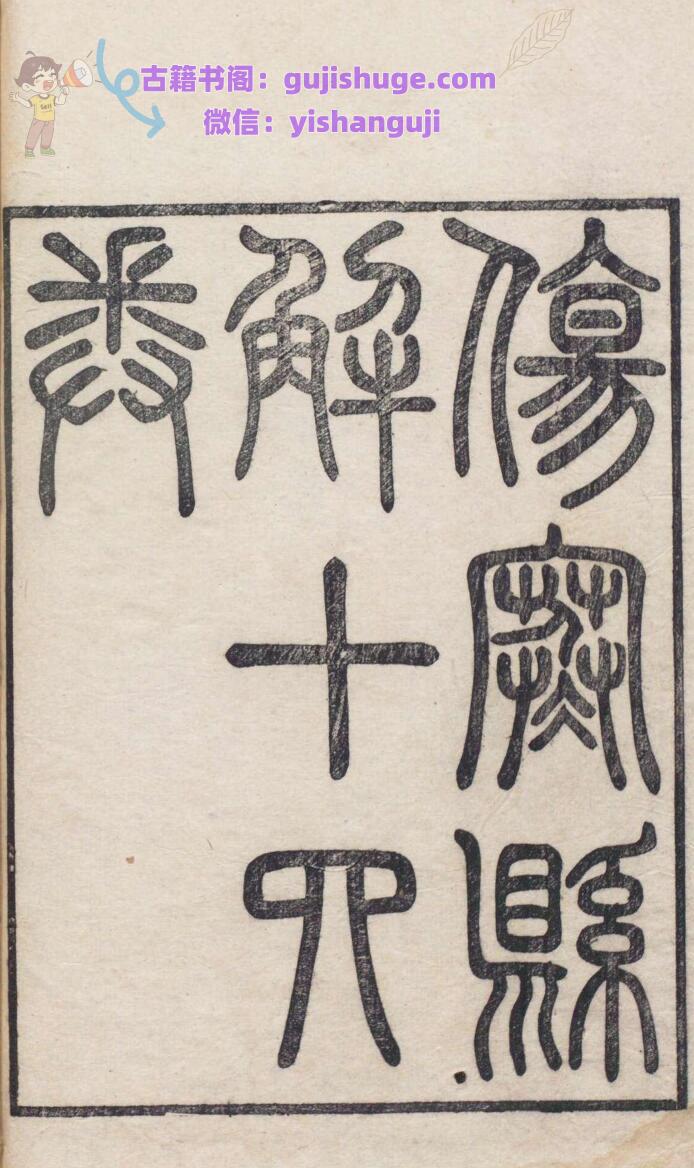 古籍书阁：gujishuge.com
微信：yishanguji
傷寒縣
解十四
卷